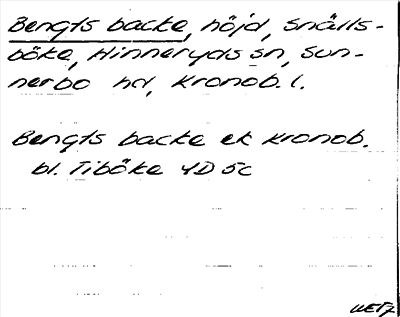 Bengts backe, höjd, Snälls-
böke, Hinneryds sn, Sun-
nerbo hd, Kronob. l.
Bengts backe ek Kronob.
bl. Tiböke 4D 5c